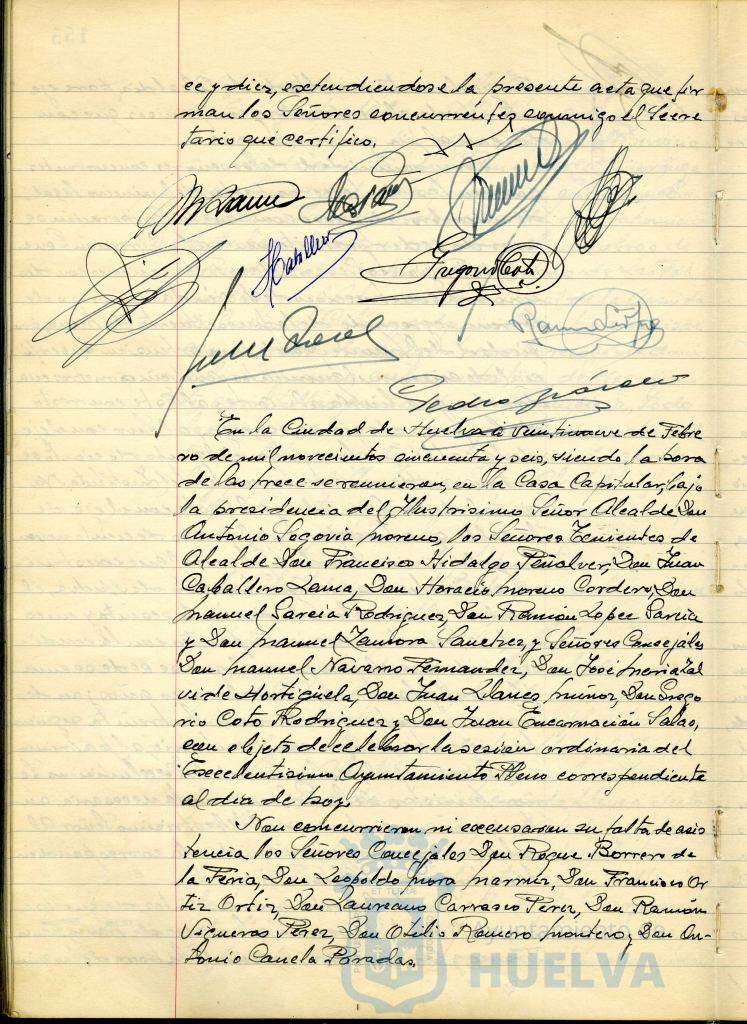 ce y diez, extendiendose la presente acta que fir
man los Señores concurrentes conmigo el Secre
tario que certifico.
HCaballero
Gregorio Coto
Pedro
En la Ciudad de Huelva a veintinueve de Febre
ro de mil novecientos cincuenta y seis, siendo la hora
de las trece se reunieron, en la Casa Capitular, bajo
la presidencia del Ilustrisimo Señor Alcalde Don
Antonio Segovia Moreno, los Señores Tenientes de
Alcalde Don Francisco Hidalgo Peñalver, Don Juan
Caballero Lama, Don Horacio Moreno Cordero, Don
Manuel Garcia Rodriguez, Don Ramón Lopez Garcia
y Don Manuel Zamora Sanchez, y Señores Concejales
Don Manuel Navarro Fernandez, Don José Maria Zal
vide Hortiguela, Don Juan Llanes Muñoz, Don Grego
rio Coto Rodriguez y Don Juan Encarnación Salas,
con objeto de celebrar la sesión ordinaria del
Excelentisimo Ayuntamiento Pleno correspondiente
al dia de hoy.
Non concurrieron ni excusaron su falta de asis
tencia los Señores Concejales Don Roque Borrero de
la Feria, Don Leopoldo Mora Don Francisco Or
tiz Ortiz, Don Laureano Carrasco Perez, Don Ramón
Vigueras Perez, Don Otilio Romero Montero y Don An-
tonio Canela Paradas.
HUELVA